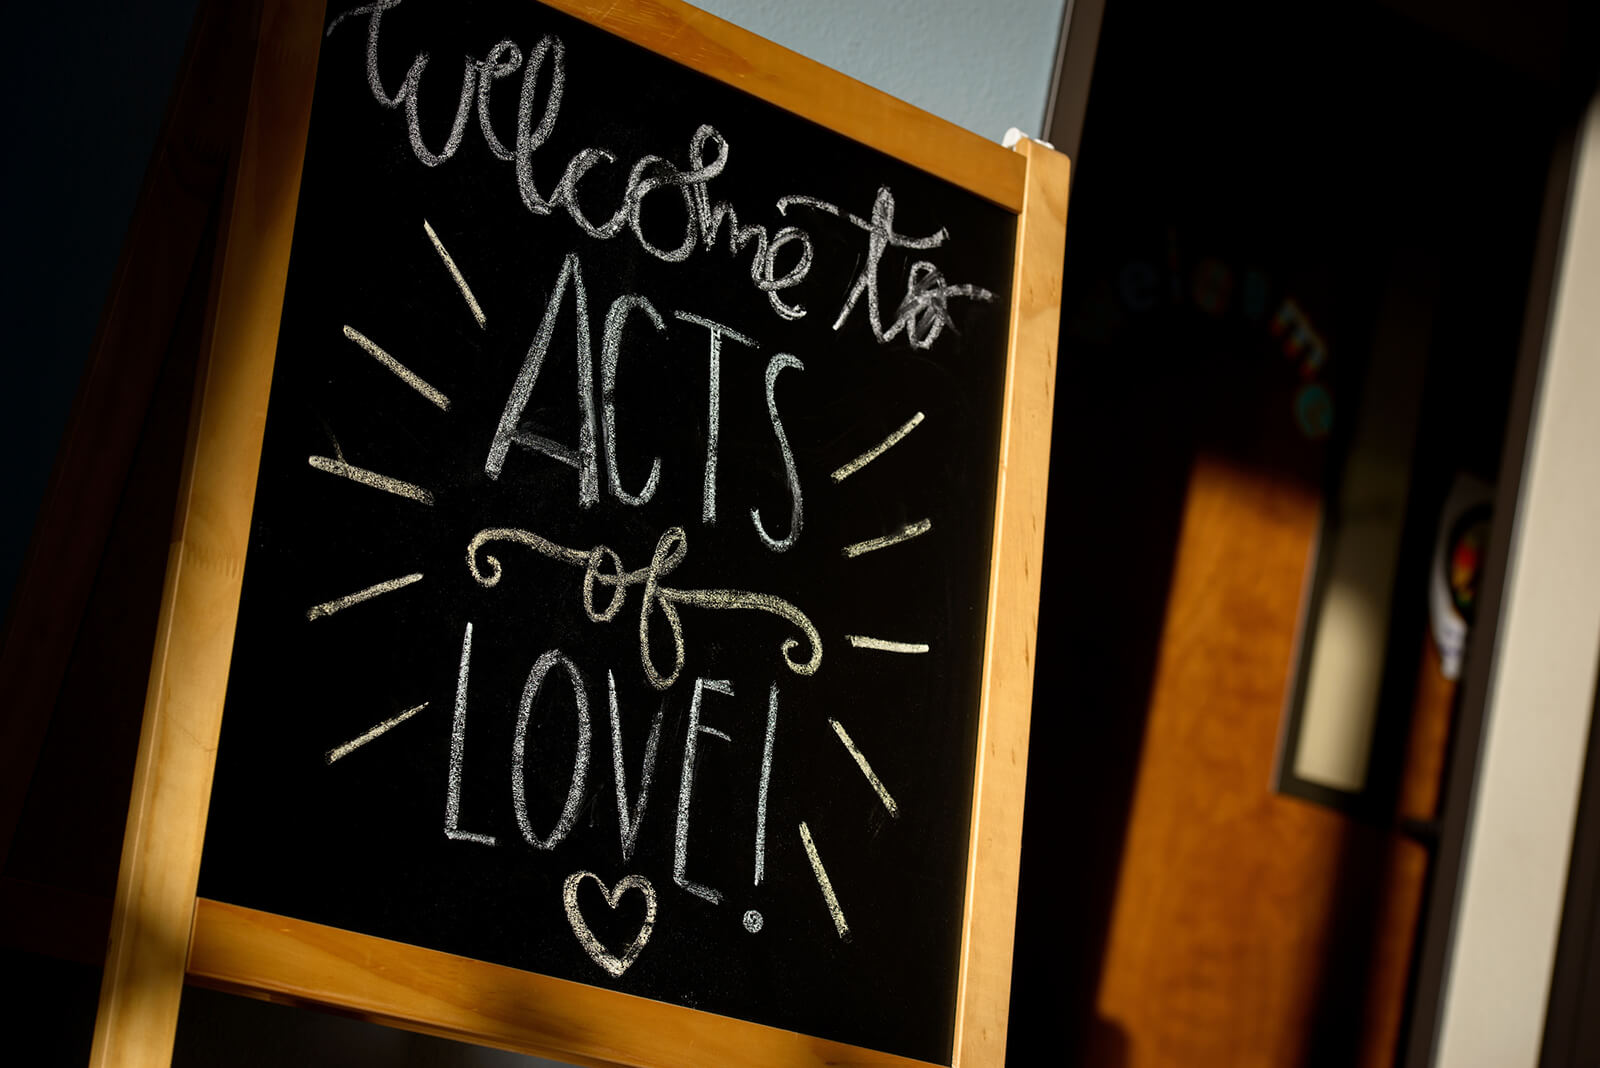 Welcome to
ACTS
of
LOVE!
welcome